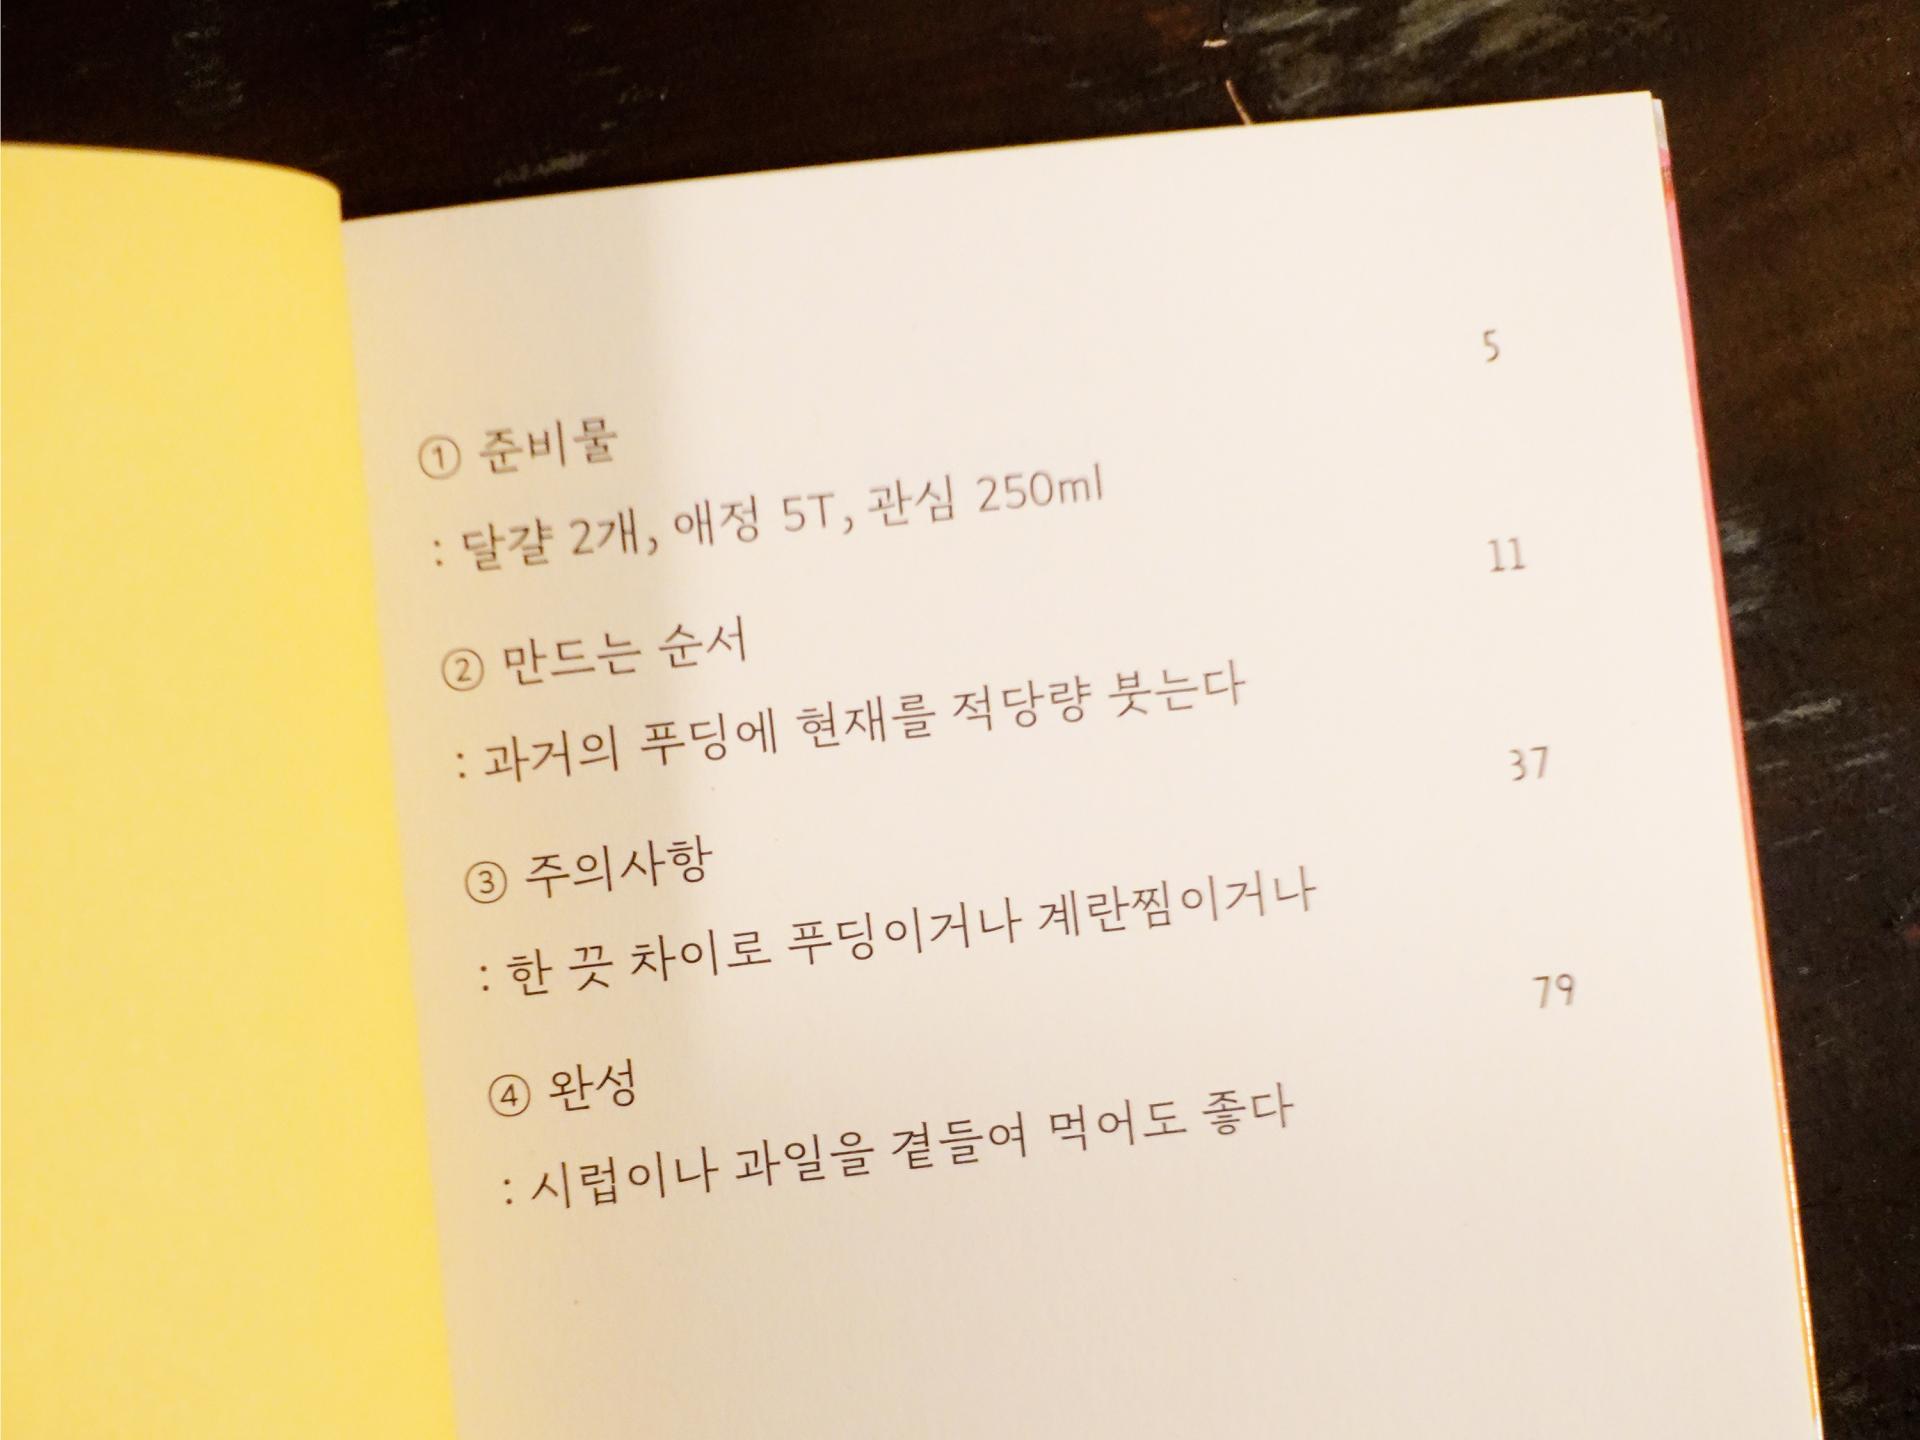 ① 준비물 5
: 달걀 2개, 애정 5T, 관심 250ml
② 만드는 순서 11
: 과거의 푸딩에 현재를 적당량 붓는다
③ 주의사항 37
: 한 끗 차이로 푸딩이거나 계란찜이거나
④ 완성 79
: 시럽이나 과일을 곁들여 먹어도 좋다